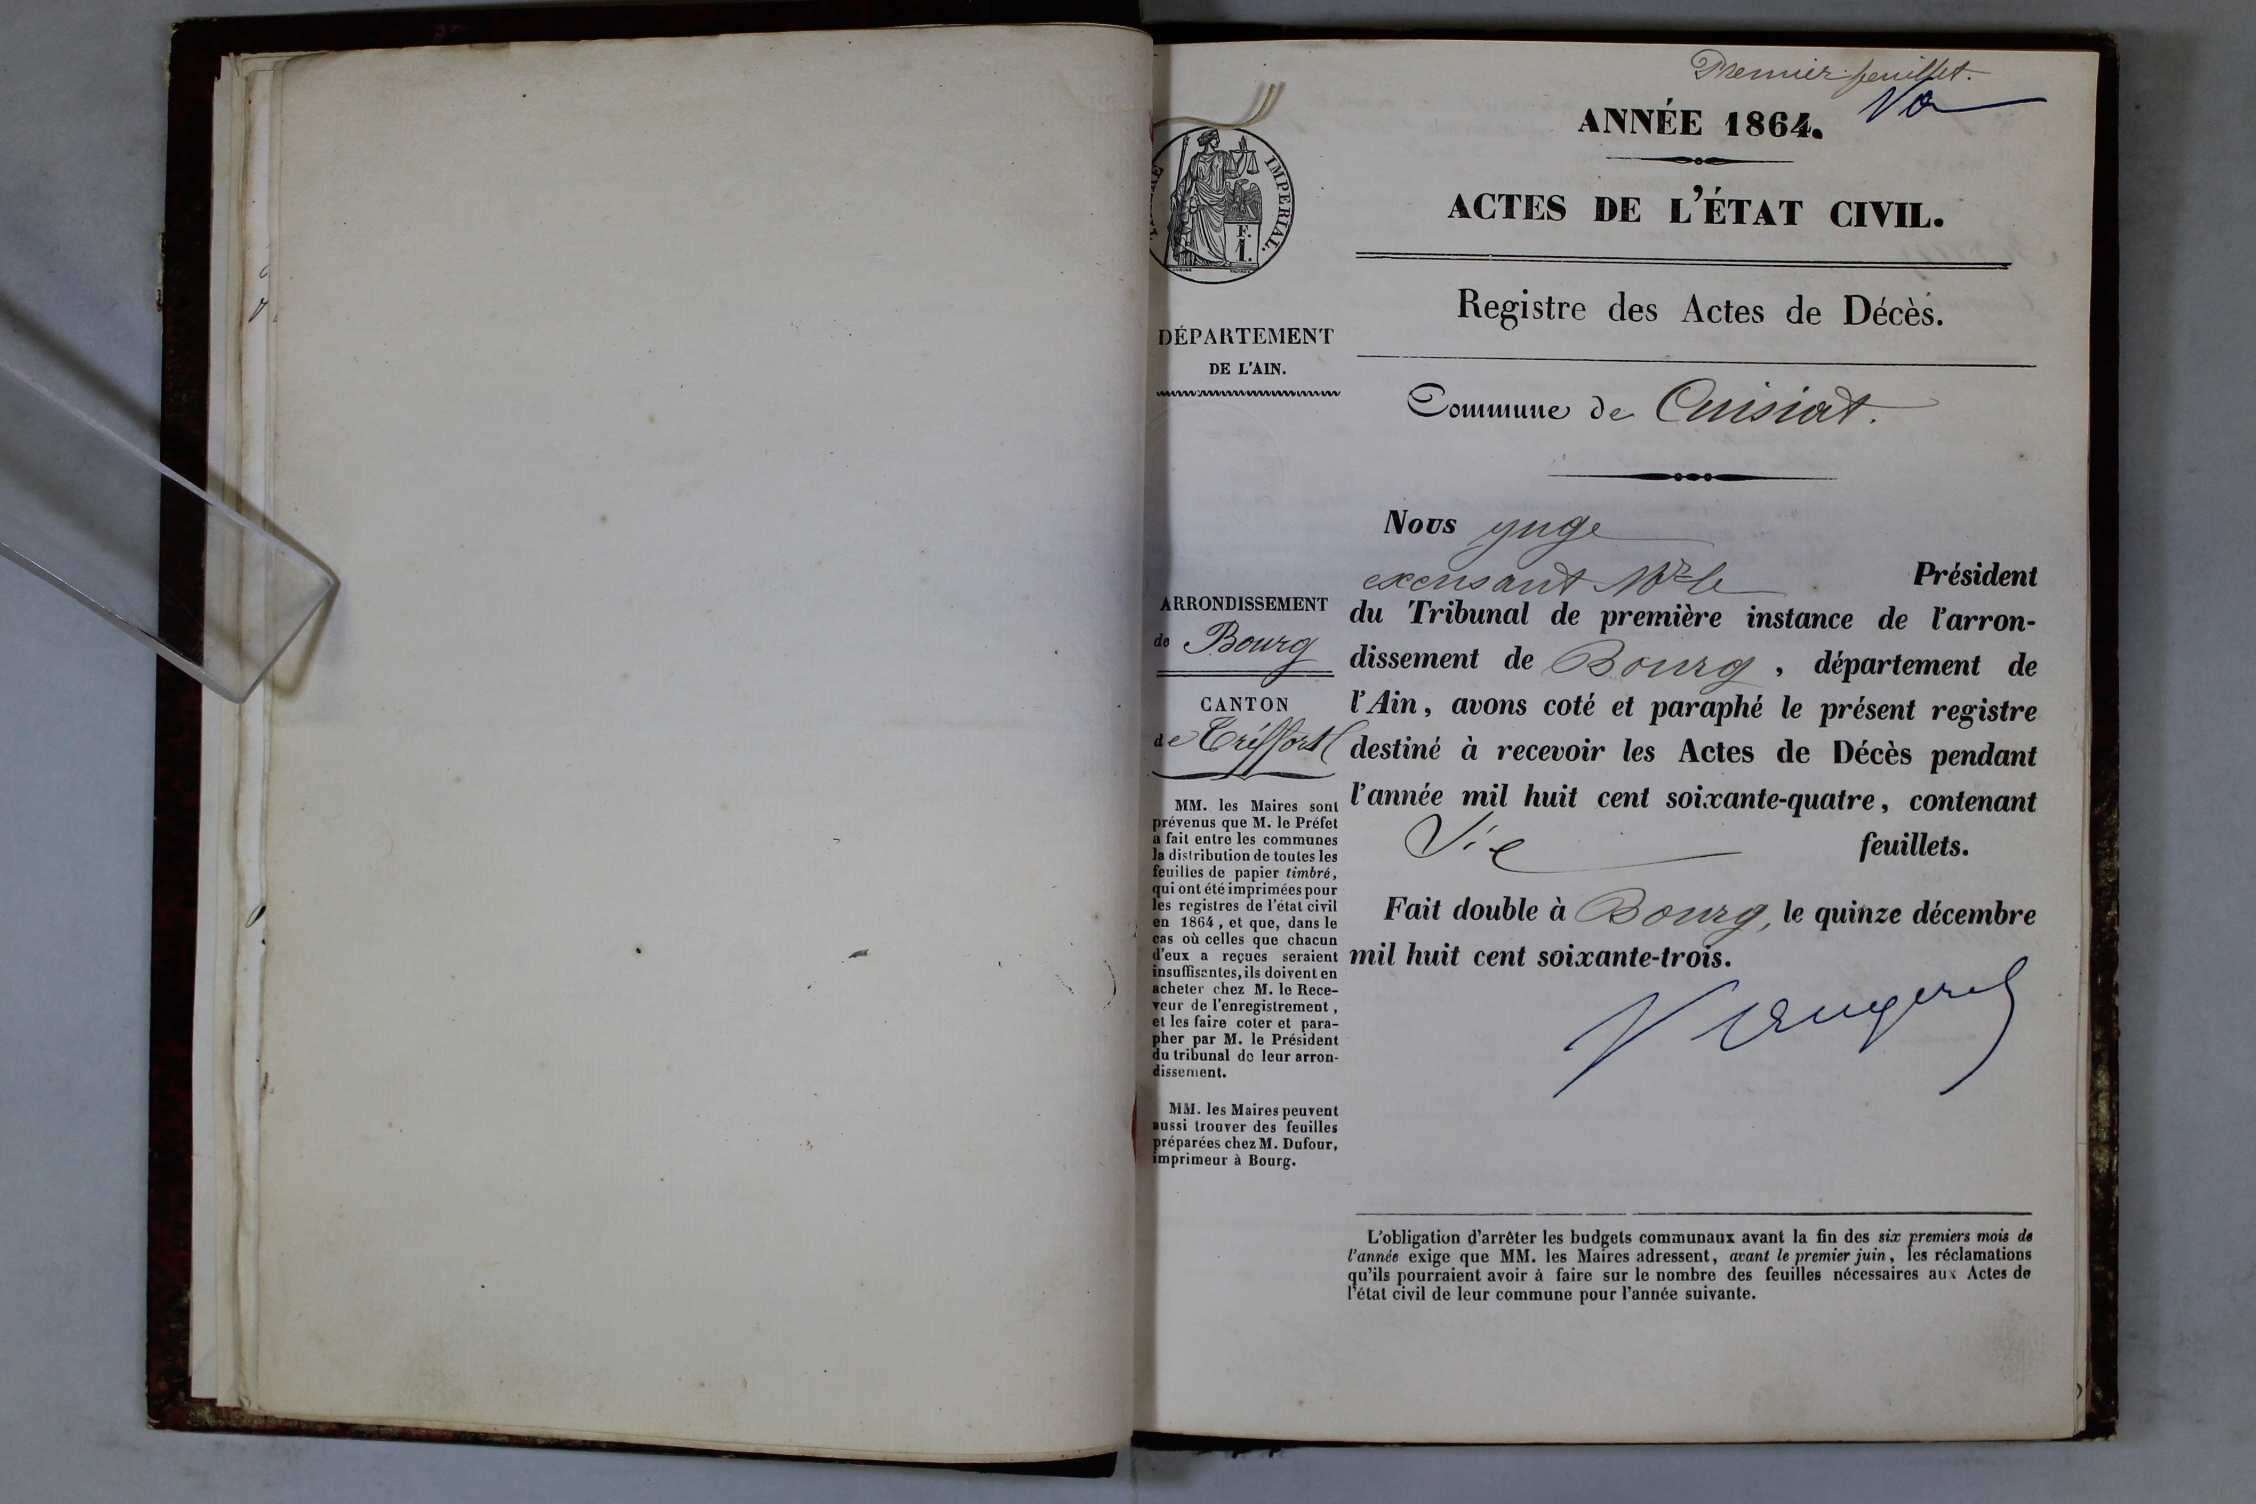 Premier feuillet.
ANNÉE 1864.
ACTES DE L'ÉTAT CIVIL.
IMPERIAL.
F.
1.
Registre des Actes de Décès.
DÉPARTEMENT
DE L'AIN.
Commune de Cuisiat.
ARRONDISSEMENT
de Bourg
CANTON
de Tréffort
MM. les Maires sont
prévenus que M. le Préfet
a fait entre les communes
la distribution de toutes les
feuilles de papier timbré,
qui ont été imprimées pour
les registres de l'état civil
en 1864, et que, dans le
cas où celles que chacun
d'eux a reçues seraient
insuffisantes, ils doivent en
acheter chez M. le Rece-
veur de l'enregistrement,
et les faire coter et para-
pher par M. le Président
du tribunal de leur arron-
dissement.
MM. les Maires peuvent
aussi trouver des feuilles
préparées chez M. Dufour,
imprimeur à Bourg.
Nous juge
excusant Mr le Président
du Tribunal de première instance de l'arron-
dissement de Bourg, département de
l'Ain, avons coté et paraphé le présent registre
destiné à recevoir les Actes de Décès pendant
l'année mil huit cent soixante-quatre, contenant
feuillets.
Fait double à Bourg, le quinze décembre
mil huit cent soixante-trois.
L'obligation d'arrêter les budgets communaux avant la fin des six premiers mois de
l'année exige que MM. les Maires adressent, avant le premier juin, les réclamations
qu'ils pourraient avoir à faire sur le nombre des feuilles nécessaires aux Actes de
l'état civil de leur commune pour l'année suivante.